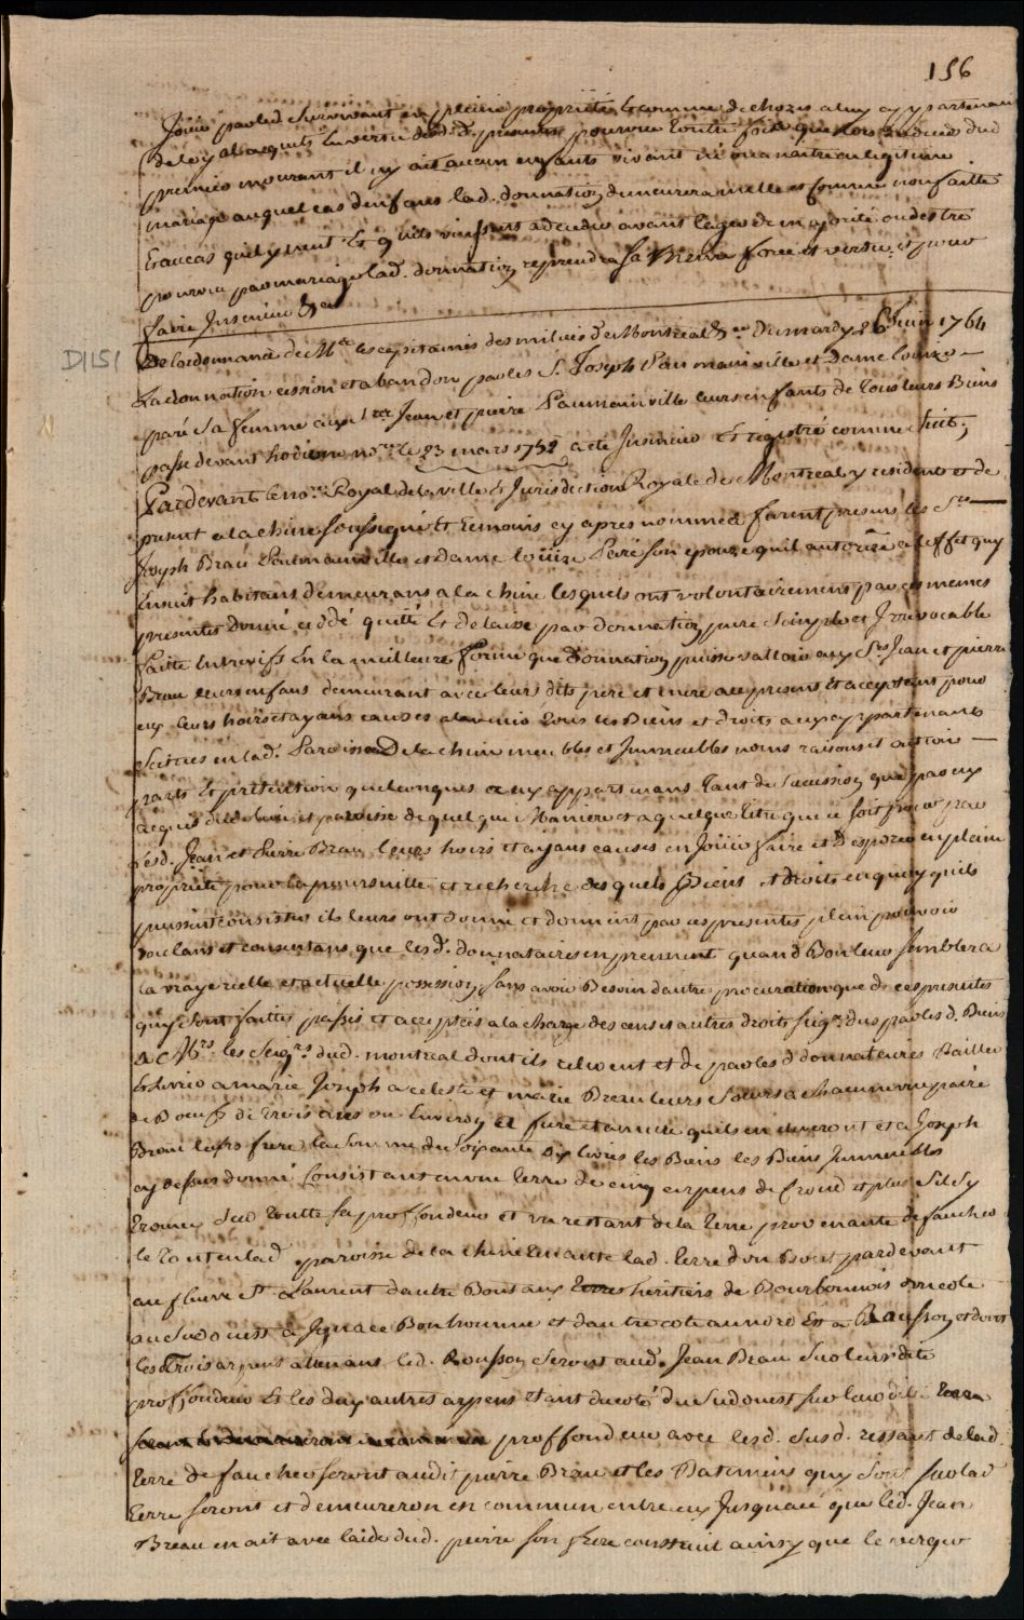 156
Jouir par led. Survivant en pleine propriété & comme de choses a luy appartenan
de loyal acquets En vertu desd. presentes pourveu toutte fois que lors du deces dud
premier mourant il ny ait aucun enfants vivant né ou a naitre en legitime
mariage auquel cas denfans lad. donnation demeurera nulle et comme non faitte
Et au cas quil y ment Et quils vinssent a deceder avant lage de majorité ou destre
pourvu par mariage lad. donnation reprendra sa force et vertu et pour
faire Insinuer &a
D151 De lordonnance de Mrs les capitaines des milices de Montreal &a Du mardy 26 Juin 1764
La donnation cession et abandon par les S. Joseph Paumainville et Dame Louise
paré Sa femme aux Srs Jean et pierre Paumainville leurs enfants de tous leurs Biens
passé devant hodiesne nore le 23 mars 1752 a eté Insinué Et registré comme suit;
Pardevant le nore Royal de la ville & Jurisdiction Royale de Montreal y residents et de
present a la chine soussigné Et temoins cy apres nommés furent presens les Srs
Joseph Brau Paumainville et Dame loüise Paré son epouze quil autorise a leffet quy
Ensuit habitans demeurans a la chine lesquels ont volontairement par ces memes
presentes donné ceddé quitté Et delaissé par donnation pure simple et Irrevocable
faitte Entrevifs En la meilleure forme que donnation puisse valloir aux Srs Jean et pierre
Brau leurs enfans demeurant avec leurs dits pere et mere a ce presens Et acceptans pour
eux leurs hoirs et ayans causes a lavenir tous les Biens et droits a eux appartenants
Scitués en lad. Paroisse De la chine meubles et Immeubles noms raisons et action
parts Et pretention quelconques a eux appartenans tant de succession que par eux
acquis et paroisse de quelque Maniere et a quelque titre que ce soit pour par
lesd. Jean et Pierre Brau leurs hoirs et ayans causes en Joüir faire et Disposer en pleine
propriété pour la poursuitte et recherche desquels Biens et droits en quoy quils
puissent consister ils leurs ont donné et donnent par ces presentes plein pouvoir
voulans et consentans que lesd. donnataires en prennent quand Bon leur semblera
la vraye reelle et actuelle possession sans avoir Besoin dautre procuration que de ces presentes
quy sont faittes passés et acceptés a la charge des cens et autres droits seigrs dus par les d. Biens
a Mrs les Seigrs dud. montreal dont ils relevent et de par les d donnataires Bailler
Et livrer a marie Joseph a celeste et marie Breau leurs Soeurs a chacune une paire
de Boeufs de trois ans ou Environ et ... quils en ... et a Joseph
Brau leurs frere la somme de soixante dix livres les Biens les Biens Immeubles
cy dessus donné Consistant en une terre de cinq arpens de front et plus Sil sy
trouve sur toutte sa proffondeur et un restant de la terre provenante de faucher
le tout en lad paroisse de la chine lad. terre dun Bout pardevant
au fleuve St Laurent dautre Bout aux terres heritiers de Bourbonnois dun cote
au Sudouest a Ignace Bonhomme et dautre cote au nord Est a Rousson et dont
les Trois arpens attenans led. Rousson seront aud. Jean Brau sur leurs dite
proffondeur Et les deux autres arpens Etant du coté du Sudouest sur leur dite
proffondeur avec lesd. susd. restant de lad.
terre de faucher seront audit pierre Brau et les Batimens quy sont sur lad
terre seront et demeureron en commun entre eux Jusquace que led. Jean
Breau en ait avec laide dud. pierre son frere construit ainsy que le verger